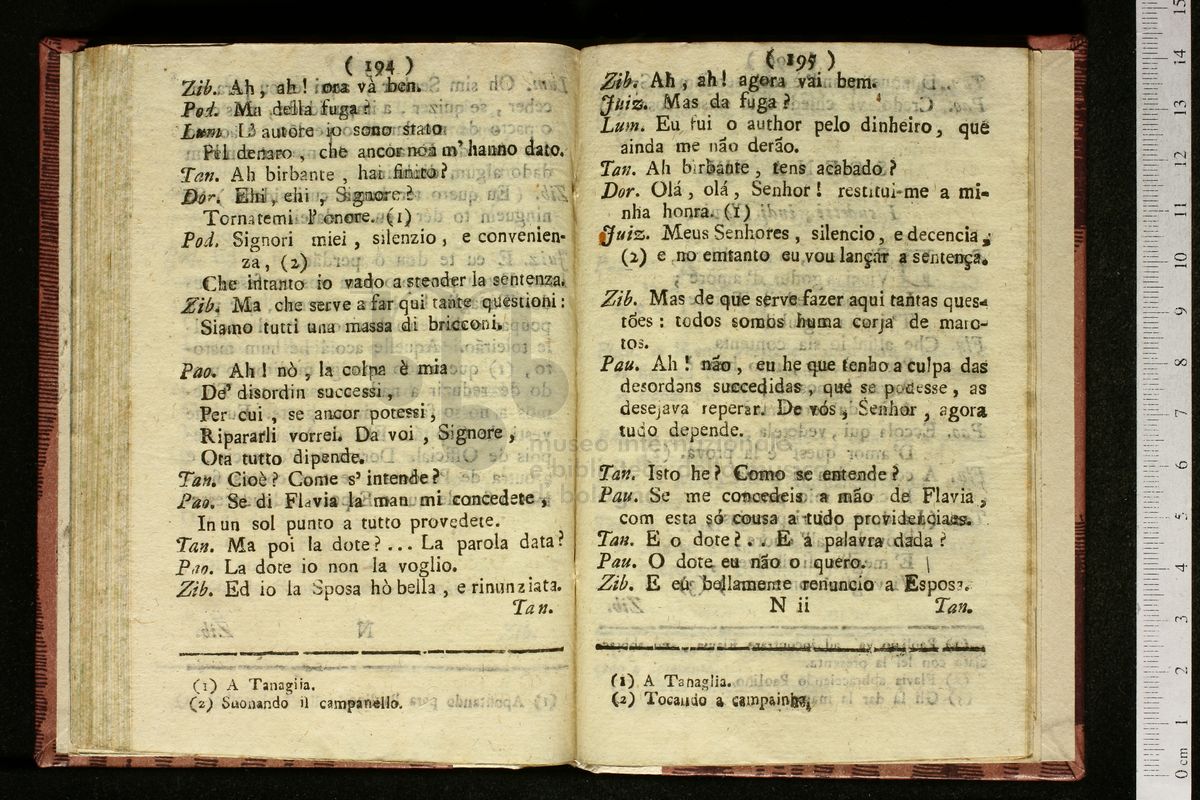 ( 194 )
Zib. Ah, ah! ora và ben.
Pod. Ma della fuga?
Lum. L' autore io sono stato
Pel denaro, che ancor non m' hanno dato.
Tan. Ah birbante, hai finito?
Dor. Ehi, ehi, Signore?
Tornatemi l' onore. (1)
Pod. Signori miei, silenzio, e convenien-
za, (2)
Che intanto io vado a stender la sentenza.
Zib. Ma che serve a far qui tante questioni:
Siamo tutti una massa di bricconi.
Pao. Ah! nò, la colpa è mia
De' disordin successi,
Per cui, se ancor potessi,
Ripararli vorrei. Da voi, Signore,
Ora tutto dipende.
Tan. Cioè? Come s' intende?
Pao. Se di Flavia la man mi concedete,
In un sol punto a tutto provedete.
Tan. Ma poi la dote?... La parola data?
Pao. La dote io non la voglio.
Zib. Ed io la Sposa hò bella, e rinunziata.
Tan.
(1) A Tanaglia.
(2) Suonando il campanello.
( 195 )
Zib. Ah, ah! agora vai bem.
Juiz. Mas da fuga?
Lum. Eu fui o author pelo dinheiro, que
ainda me não derão.
Tan. Ah birbante, tens acabado?
Dor. Olá, olá, Senhor! restitui-me a mi-
nha honra. (1)
Juiz. Meus Senhores, silencio, e decencia,
(2) e no emtanto eu vou lançar a sentença.
Zib. Mas de que serve fazer aqui tantas ques-
tões: todos somos huma corja de maro-
tos.
Pau. Ah! não, eu he que tenho a culpa das
desordans succedidas, que se podesse, as
desejava reperar. De vós, Senhor, agora
tudo depende.
Tan. Isto he? Como se entende?
Pau. Se me concedeis a mão de Flavia,
com esta só cousa a tudo providenciaes.
Tan. E o dote?.. E a palavra dada?
Pau. O dote eu não o quero.
Zib. E eu bellamente renuncio a Esposa.
N ii Tan.
(1) A Tanaglia.
(2) Tocando a campainha.
museo internazionale
0 cm 1 2 3 4 5 6 7 8 9 10 11 12 13 14 15